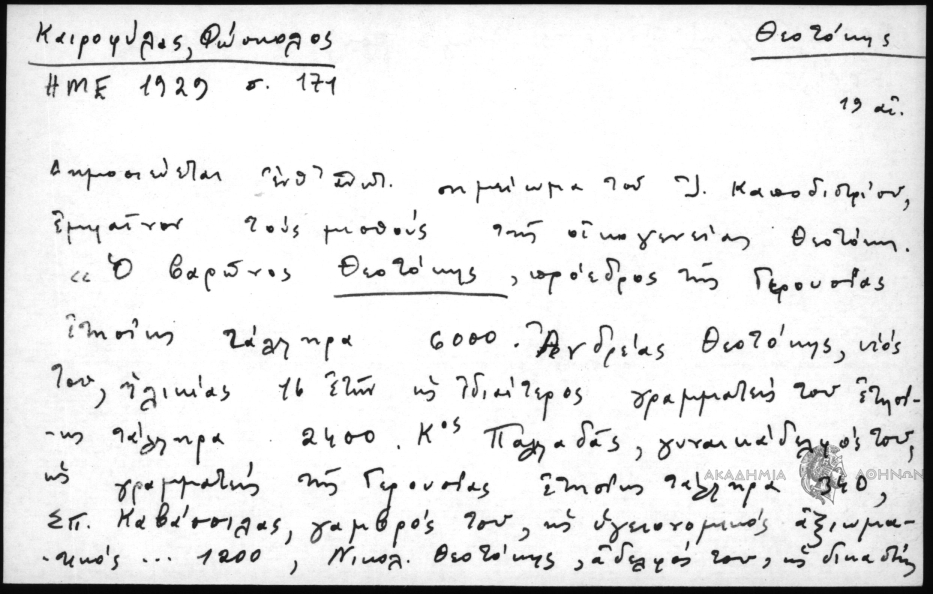 Καιροφύλας, Φώσκολος
Θεοτόκης
ΗΜΕ 1929 σ. 171
19 αἰ.
Δημοσιεύεται σημείωμα τοῦ Ἰ. Καποδιστρίου,
ἐμφαῖνον τοὺς μισθοὺς τῆς οἰκογενείας Θεοτόκη.
«Ὁ βαρῶνος Θεοτόκης, πρόεδρος τῆς Γερουσίας
ἐτησίως τάλληρα 6000. Ἀνδρέας Θεοτόκης, υἱός
του, ἡλικίας 16 ἐτῶν ὡς ἰδιαίτερος γραμματεύς του ἐτησί-
-ως τάλληρα 2400. Κος Παλλαδᾶς, γυναικάδελφός του,
ὡς γραμματεύς τῆς Γερουσίας ἐτησίως τάλληρα 340,
Σπ. Καβάσιλας, γαμβρός του, ὡς ὑγειονομικός ἀξιωμα-
-τικός ... 1200, Νικολ. Θεοτόκης, ἀδελφός του, ὡς δικαστής
ΑΚΑΔΗΜΙΑ ΑΘΗΝΩΝ